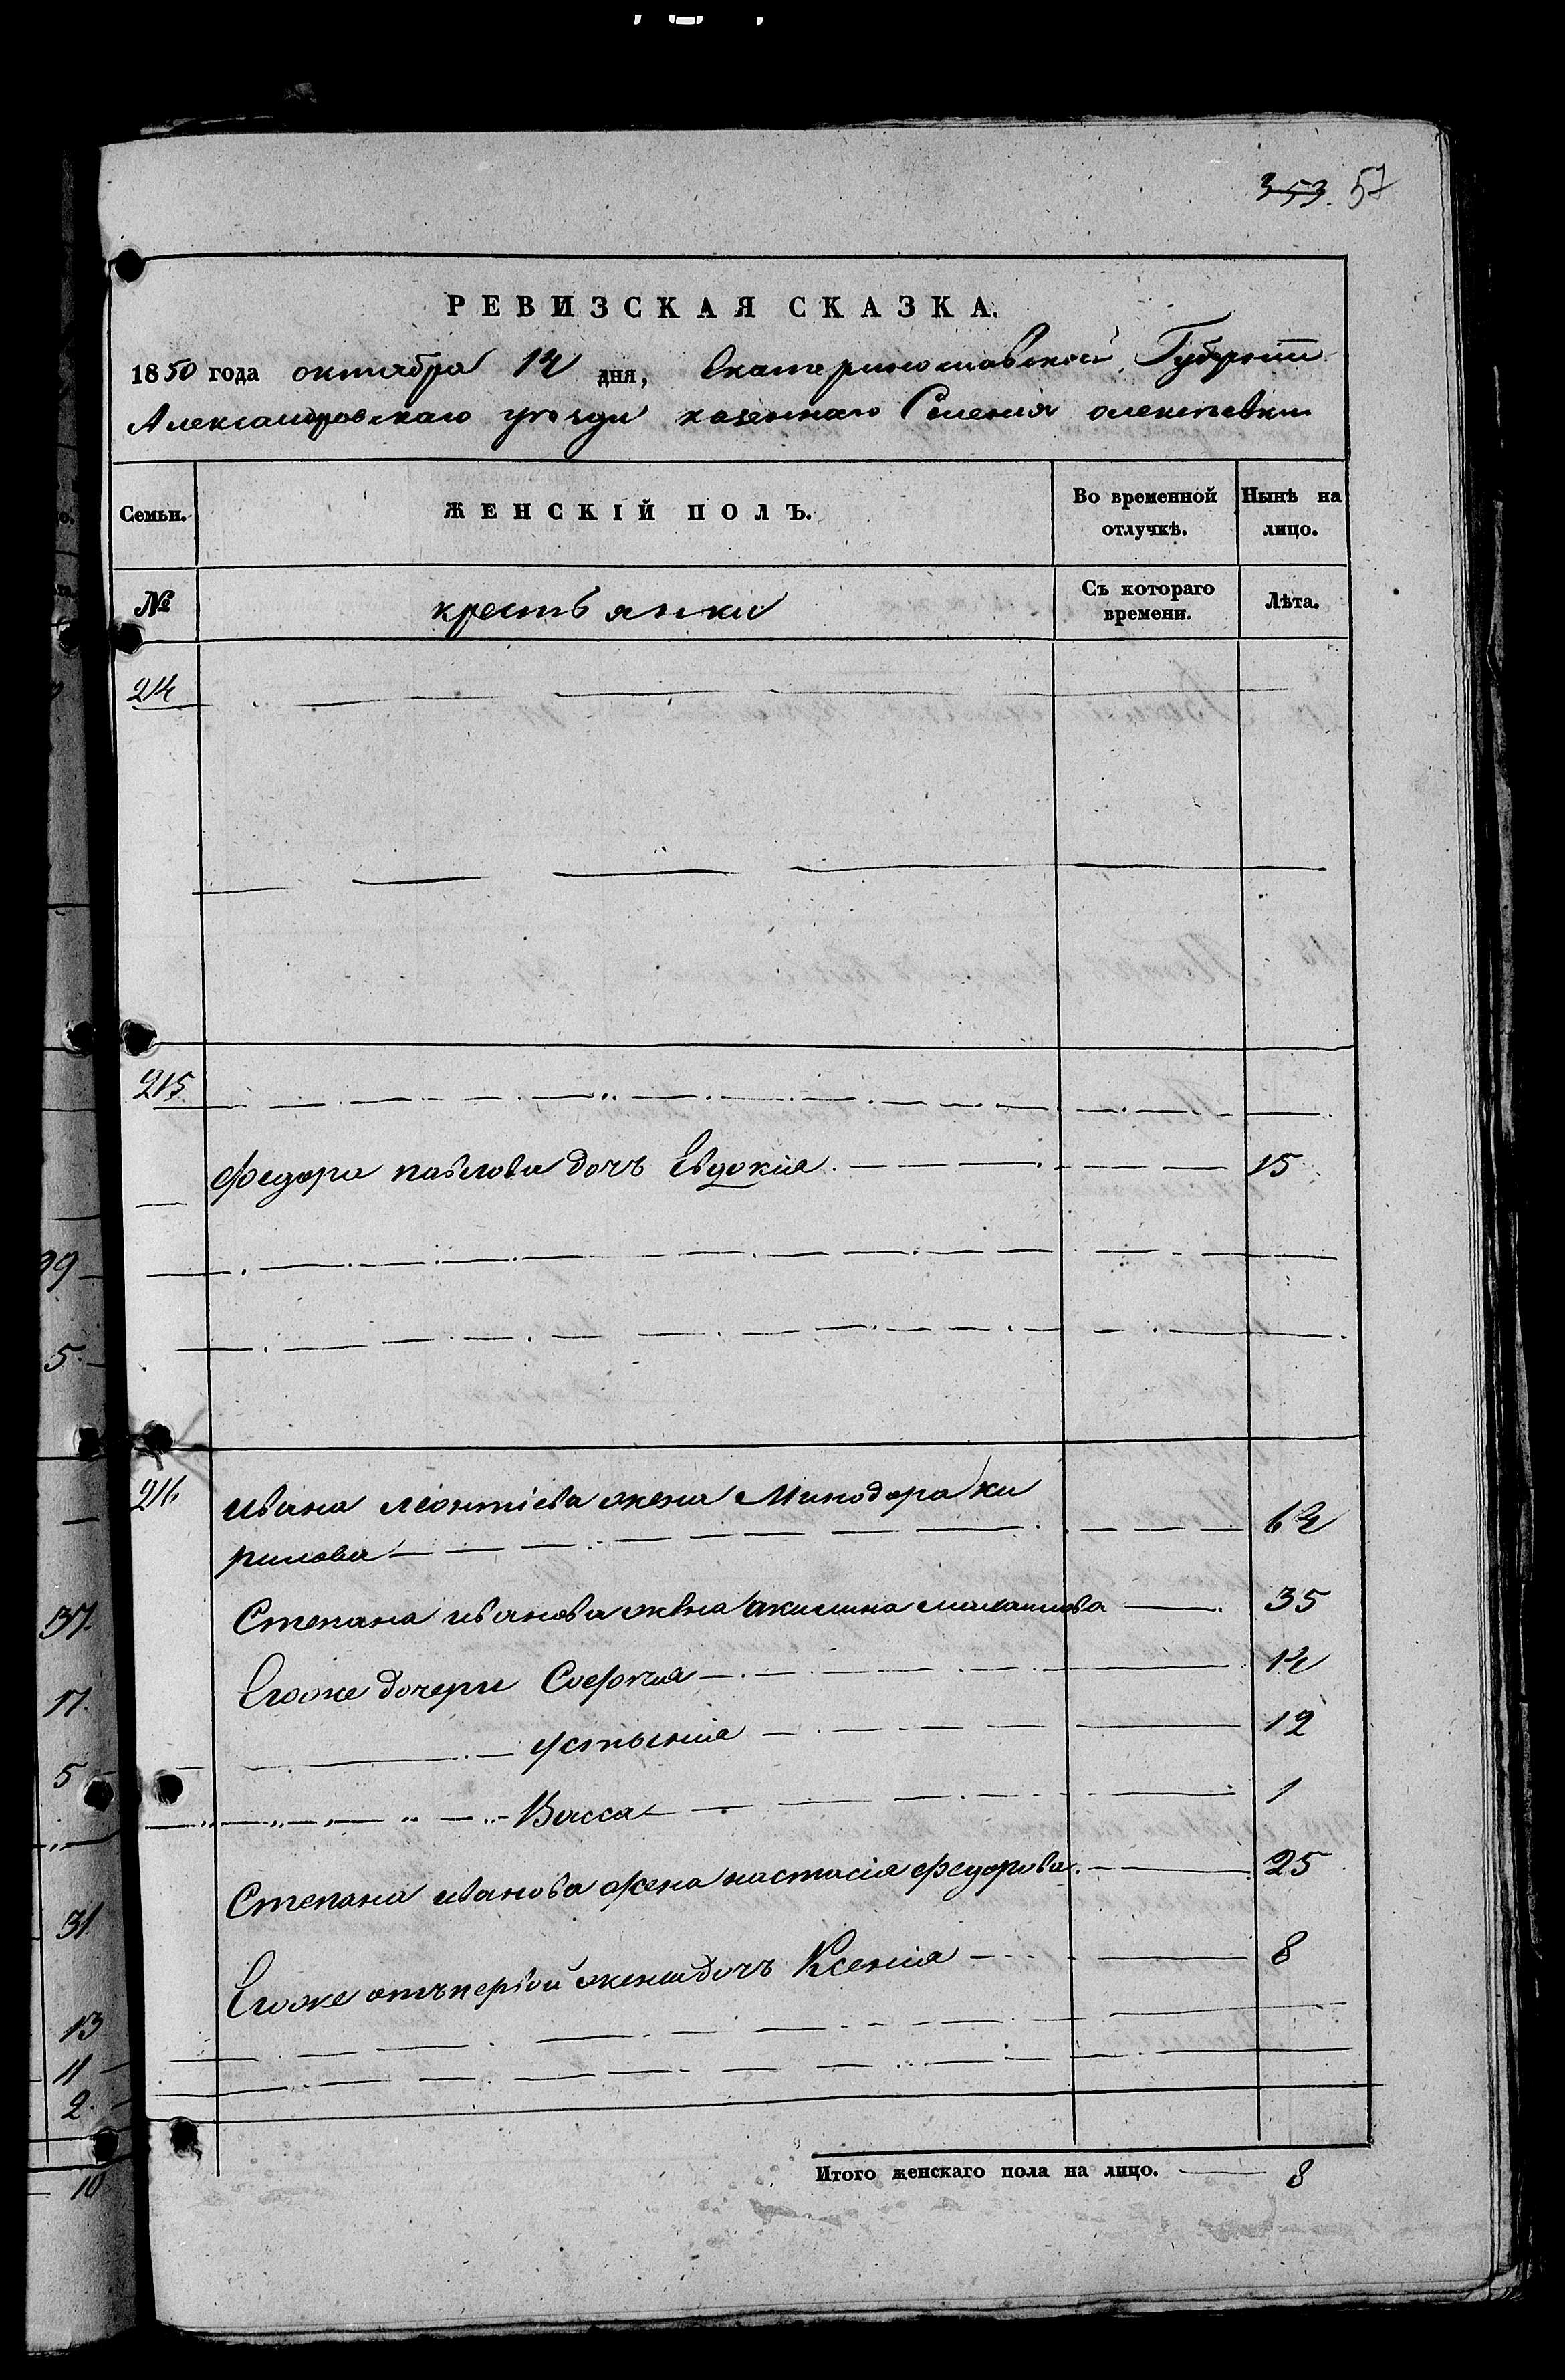 353. 57
РЕВИЗСКАЯ СКАЗКА.
1850 года октября 14 дня, Екатеринославской Губернии
Александровскаго уезда казеннаго Селения
Семьи. ЖЕНСКІЙ ПОЛЪ. Во временной отлучкѣ. Нынѣ на лицо.
№ крестьянки Съ котораго времени. Лѣта.
214
215
Федора павлова дочь Евдокия 15
216 ивана леонтіева жена Минодора ки
рилова 64
Степана иванова жена акилина 35
Егоже дочери София 14
устыния 12
Васса 1
Степана иванова жена настасія федорова 25
Егоже отъ первой жены дочь Ксенія 8
Итого женскаго пола на лицо. 8
99
5
37
17
5
31
13
11
2
10